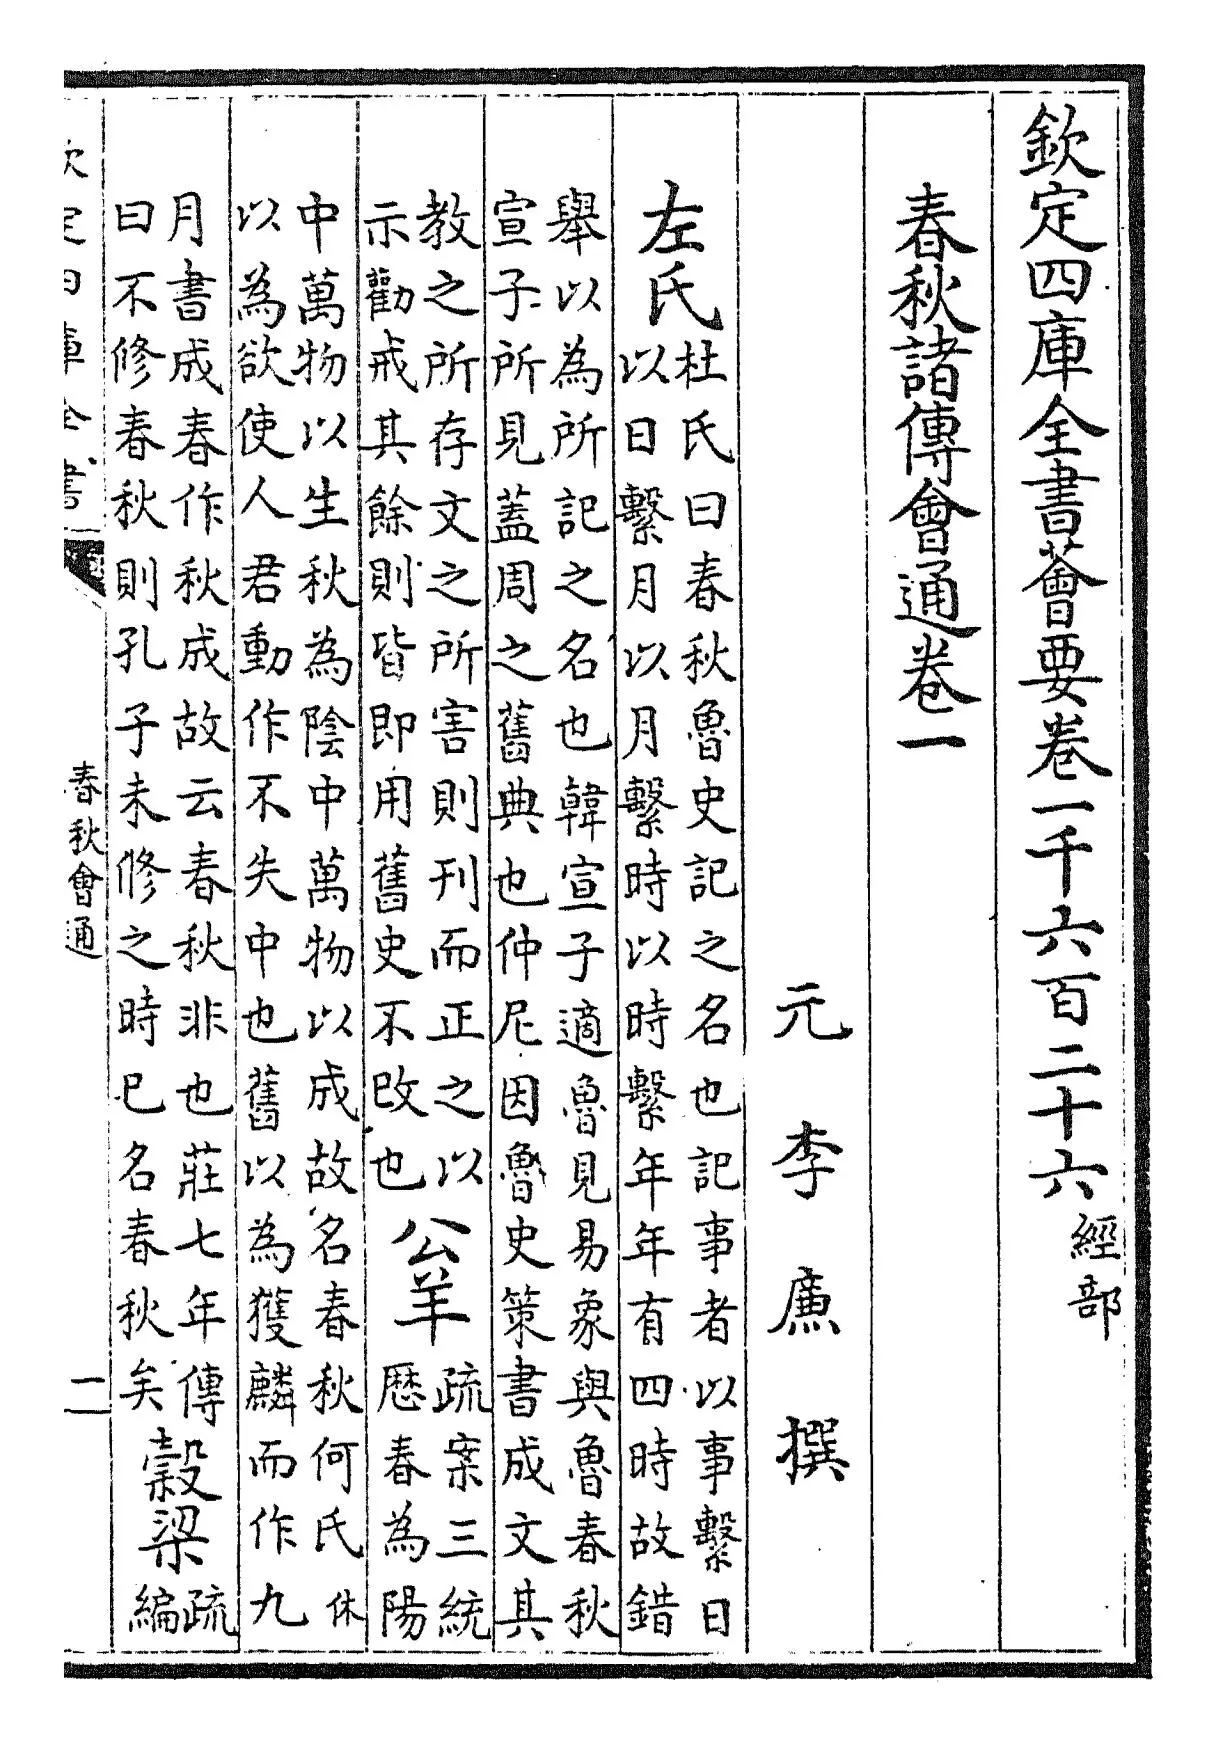 欽定四庫全書薈要卷一千六百二十六經部
春秋諸傳會通卷一
元李廉撰
左氏
杜氏曰春秋魯史記之名也記事者以事繫日
以日繫月以月繫時以時繫年年有四時故錯
舉以為所記之名也韓宣子適魯見易象與魯春秋
宣子所見蓋周之舊典也仲尼因魯史策書成文其
教之所存文之所害則刊而正之以
示勸戒其餘則皆即用舊史不改也
公羊
疏案三統
歷春為陽
中萬物以生秋為陰中萬物以成故名春秋何氏休
以為欲使人君動作不失中也舊以為獲麟而作九
月書成春作秋成故云春秋非也莊七年傳
曰不修春秋則孔子未修之時已名春秋矣
穀梁
疏
編
欽定四庫全書
春秋會通
一